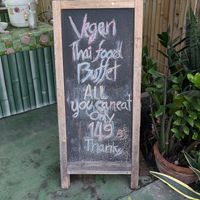 Vegan
Thai food
Buffet
ALL
you can eat
Only
149
Thanks